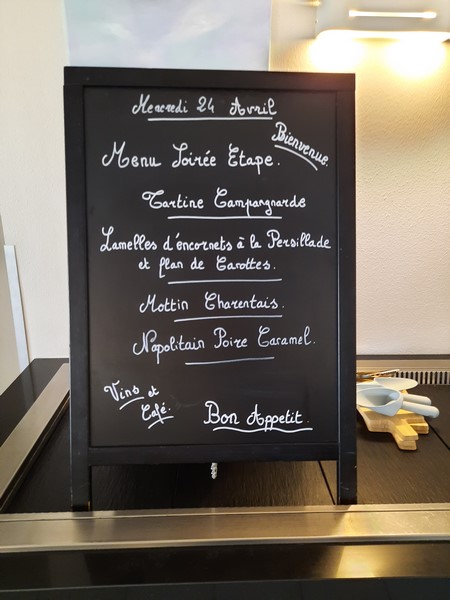 Mercredi 24 Avril
Bienvenue.
Menu Soirée Etape.
Tartine Campagnarde
Lamelles d'encornets à la Persillade
et flan de Carottes.
Mottin Charentais.
Napolitain Poire Caramel.
Vins et
Café.
Bon Appetit.